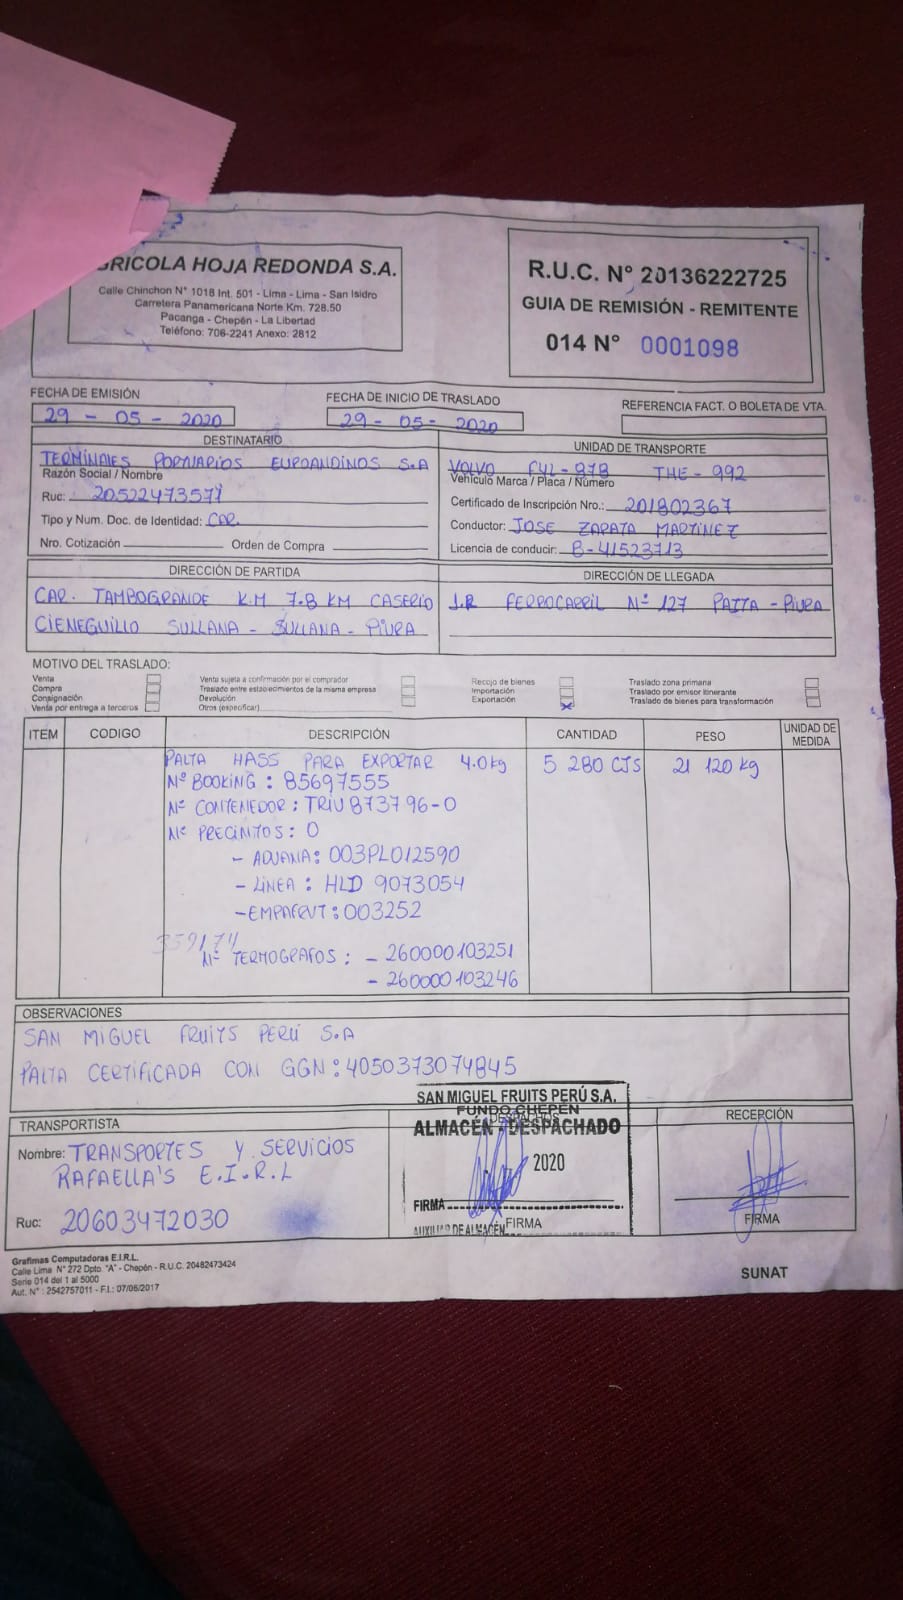 GRICOLA HOJA REDONDA S.A.
Calle Chinchon N° 1018 Int. 501 - Lima - Lima - San Isidro
Carretera Panamericana Norte Km. 728.50
Pacanga - Chepén - La Libertad
Teléfono: 706-2241 Anexo: 2812
R.U.C. N° 20136222725
GUIA DE REMISIÓN - REMITENTE
014 N° 0001098
FECHA DE EMISIÓN
29 - 05 - 2020
FECHA DE INICIO DE TRASLADO
29 - 05 - 2020
REFERENCIA FACT. O BOLETA DE VTA.
DESTINATARIO
TERMINALES PORTUARIOS EUROANDINOS S.A
Razón Social / Nombre
Ruc: 20522473571
Tipo y Num. Doc. de Identidad: CAR.
Nro. Cotización Orden de Compra
UNIDAD DE TRANSPORTE
VOLVO 878 THE - 992
Vehículo Marca / Placa / Número
Certificado de Inscripción Nro.: 201802367
Conductor: JOSE ZAPATA MARTINEZ
Licencia de conducir: B-41523713
DIRECCIÓN DE PARTIDA
CAR. TAMBOGRANDE K.M 7.8 KM CASERIO
CIENEGUILLO SULLANA - SULLANA - PIURA
DIRECCIÓN DE LLEGADA
J.R FERROCARRIL N° 127 PAITA - PIURA
MOTIVO DEL TRASLADO:
Venta
Compra
Consignación
Venta por entrega a terceros
Venta sujeta a confirmación por el comprador
Traslado entre establecimientos de la misma empresa
Devolución
Otros (especificar)
Recojo de bienes
Importación
Exportación X
Traslado zona primaria
Traslado por emisor itinerante
Traslado de bienes para transformación
ITEM CODIGO DESCRIPCIÓN CANTIDAD PESO UNIDAD DE MEDIDA
PALTA HASS PARA EXPORTAR 4.0kg 5 280 CJS 21 120 kg
N° BOOKING : 85697555
N° CONTENEDOR : TRIU 873796-0
N° PRECINTOS : 0
- ADUANA : 003PL012590
- LÍNEA : HLD 9073054
- EMPAFRUT : 003252
359174
N° TERMOGRAFOS : - 260000103251
- 260000103246
OBSERVACIONES
SAN MIGUEL FRUITS PERÚ S.A
PALTA CERTIFICADA CON GGN : 4050373074845
TRANSPORTISTA
Nombre: TRANSPORTES Y SERVICIOS
RAFAELLA'S E.I.R.L
Ruc: 20603472030
SAN MIGUEL FRUITS PERÚ S.A.
FUNDO CHEPÉN
DESPACHOS
ALMACÉN - DESPACHADO
2020
FIRMA
AUXILIAR DE ALMACÉN FIRMA
RECEPCIÓN
FIRMA
Grafimas Computadoras E.I.R.L.
Calle Lima N° 272 Dpto. "A" - Chepén - R.U.C. 20482473424
Serie 014 del 1 al 5000
Aut. N° : 2542757011 - F.I.: 07/06/2017
SUNAT